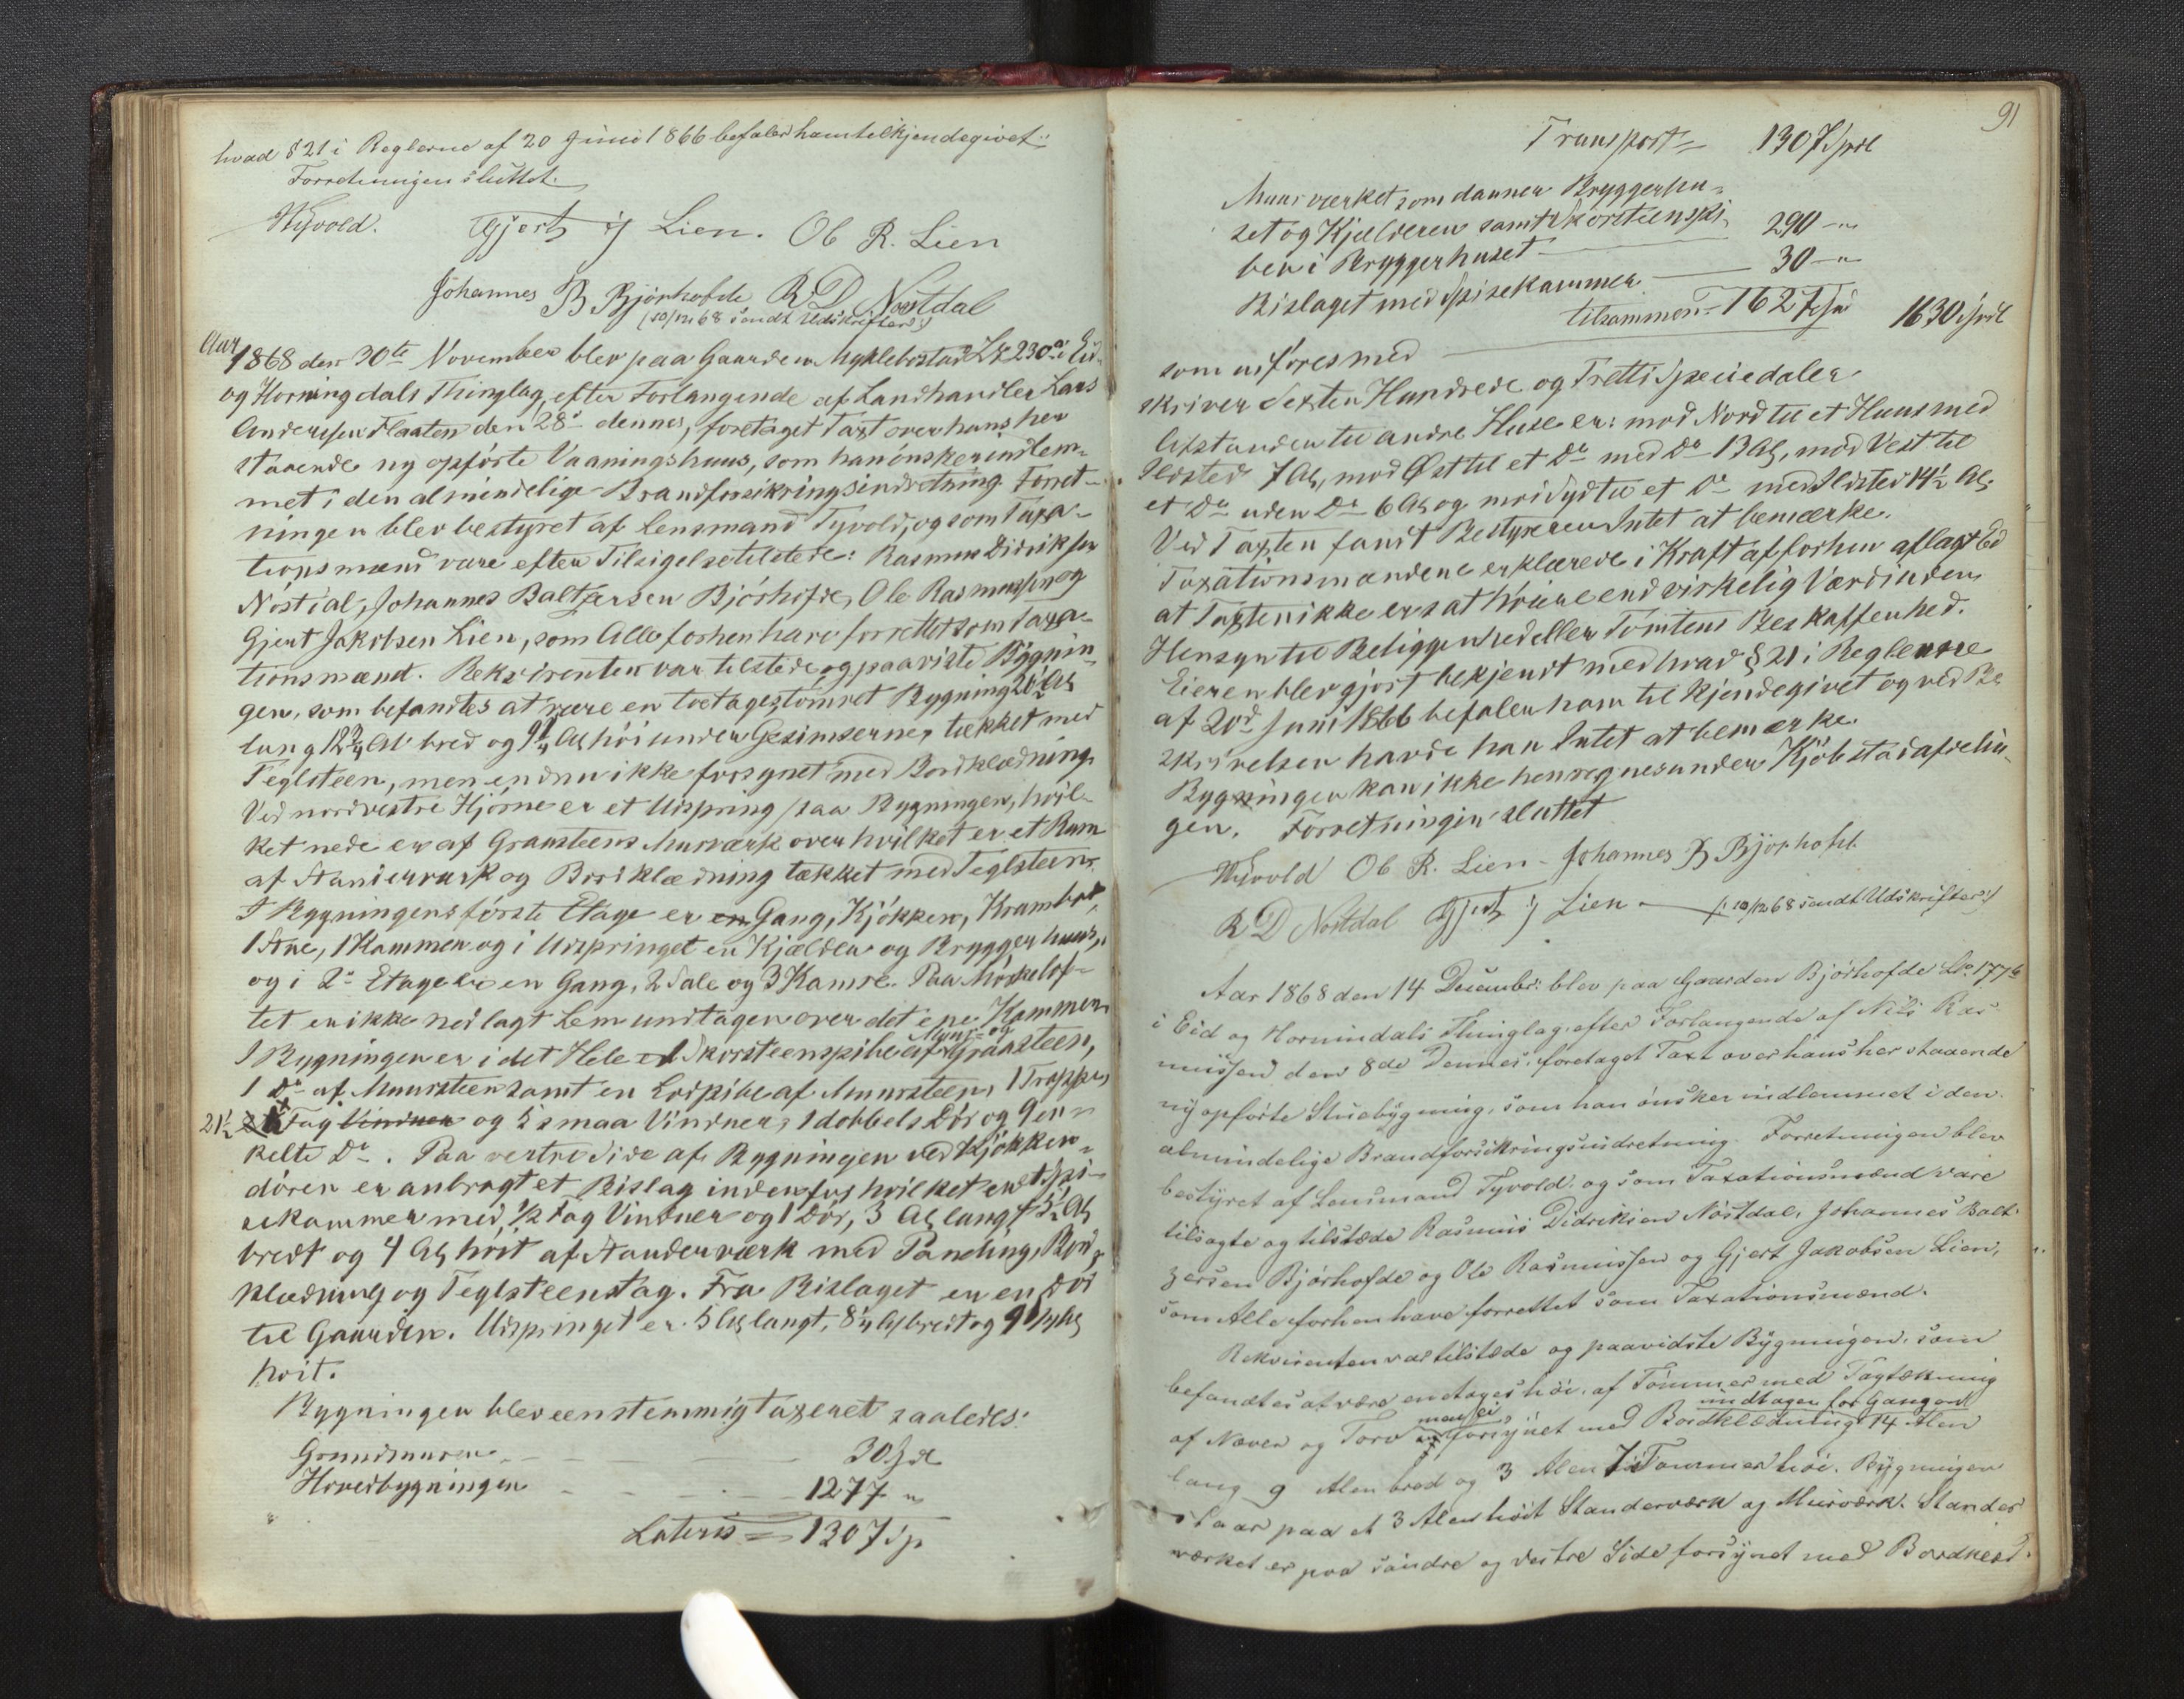 hvad § 21 i Reglerne af 20 Juni 1866 befaler ham tilkjendegivet.
Forretningen sluttet.
Tyvold. Gjert J Lien. Ole R. Lien
Johannes B Bjørhofde R D Nøstdal
(10/12 68 sendt Udskrifter)
Aar 1868 den 30te November blev paa Gaarden Myklebostad Lø 230a i Eid
og Horningdals Thinglag efter Forlangende af Landhandler Lars
Anderssen Flaaten den 28de dennes, foretaget Taxt over hans her
staaende ny opførte Vaaningshuus, som han ønsker indlem-
met i den almindelige Brandforsikringsindretning. Forret-
ningen blev bestyret af Lensmand Tyvold, og som Taxa-
tionsmænd vare efter Tilsigelse tilstede: Rasmus Didriksen
Nøstdal, Johannes Baltzersen Bjørhofde, Ole Rasmussen og
Gjert Jakobsen Lien, som Alle forhen have forrettet som Taxa-
tionsmænd. Rekvirenten var tilstede og paaviste Bygnin-
gen, som befandtes at være en toetages tømret Bygning 20½ Al
lang 12¾ Al bred og 9¼ Al høi under Gesimserne, tækket med
Teglsteen, men endnu ikke forsynet med Bordklædning.
Ved nordvestre Hjørne er et Udspring paa Bygningen, hvil-
ket nede er af Graasteens Muurværk over hvilket er et Rum
af Standerværk og Bordklædning tækket med Teglsteen.
I Bygningens første Etage er en Gang, Kjøkken, Krambod,
1 Stue, 1 Kammer og i Udspringet en Kjælder og Bryggerhuus,
og i 2den Etage er en Gang, 2 Sale og 3 Kamre. Paa Mørkelof-
tet er ikke nedlagt Lem undtagen over det ene Kammer
I Bygningen er i det Hele 1 Skorsteenspibe af Muur- og Graasteen,
1 Do af Muursteen samt en Lodpibe af Muursteen, 1 Trappe,
21½ Fag Vinduer og 5 smaa Vinduer, 1 dobbelt Dør og 9 en-
kelte Do. Paa vestre Side af Bygningen ved Kjøkken-
døren er anbragt et Bislag indenfor hvilket er et Spi-
sekammer med ½ Fag Vinduer og 1 Dør, 3 Al langt, 5½ Al
bredt og 4 Al høit af Standerværk med Panding, Bord-
klædning og Teglsteenstag. Fra Bislaget er en Dør
til Gaarden. Udspringet er 5 Al langt, 8¼ Al bredt og 9¼ Al
høit.
Bygningen blev eenstemmig taxeret saaledes:
Grundmuren - - - 30 Spd
Hovedbygningen - - - 1277 "
Lateris = 1307 Sp
91
Transport = 1307 Spd
Muurværket som danner Bryggerhu-
set og Kjælderen samt Skorsteenspi-
ben i Bryggerhuset — 290 — "
Bislaget med Spisekammer — 30 — "
tilsammen = 1627 Spd
som udføres med — 1630 Spd
skriver Sexten Hundrede og Tretti Speciedaler.
Afstanden til andre Huse er: mod Nord til et Huus med
Ildsted 7 Al, mod Øst til et Do med Do 13 Al, mod Vest til
et Do uden Do 6 Al og mod Syd til et Do med Ildsted 14½ Al.
Ved Taxten fandt Bestyreren Intet at bemærke.
Taxationsmændene erklærede i Kraft af forhen aflagt Ed
at Taxten ikke er sat høiere end virkelig Værdi uden
Hensyn til Beliggenhed eller Tomtens Beskaffenhed.
Eieren blev gjort bekjendt med hvad § 21 i Reglerne
af 20de Juni 1866 befaler ham tilkjendegivet og ved Be
skrivelsen havde han Intet at bemærke.
Bygningen kan ikke henregnes under Kjøbstadafdelin-
gen. Forretningen sluttet
Tyvold Ole R. Lien - Johannes B Bjørhofd.
R D Nøstdal Gjert J Lien — (10/12 68 sendt Udskrifter)
Aar 1868 den 14 December blev paa Gaarden Bjørhofde Lø. 177b
i Eid og Hornindals Thinglag efter Forlangende af Nils Ras-
mussen den 8de Dennes, foretaget Taxt over hans her staaende
ny opførte Stuebygning, som han ønsker indlemmet i den
almindelige Brandforsikringsindretning. Forretningen blev
bestyret af Lensmand Tyvold, og som Taxationsmænd vare
tilsagte og tilstæde Rasmus Didriksen Nøstdal, Johannes Balt-
zersen Bjørhofde og Ole Rasmussen og Gjert Jakobsen Lien,
som Alle forhen have forrettet som Taxationsmænd.
Rekvirenten var tilstæde og paavidste Bygningen, som
befandtes at være en etages høi, af Tømmer med Tagtækning
af Næver og Torv men ei forsynet med Bordklædning undtagen for Gangen 14 Alen
lang 9 Alen bred og 3 Alen 7 Tommer høi. Bygningen
staar paa et 3 Alen høit Standerværk og Muurværk. Stander
værket er paa søndre og vestre Side forsynet med Bordklæd-